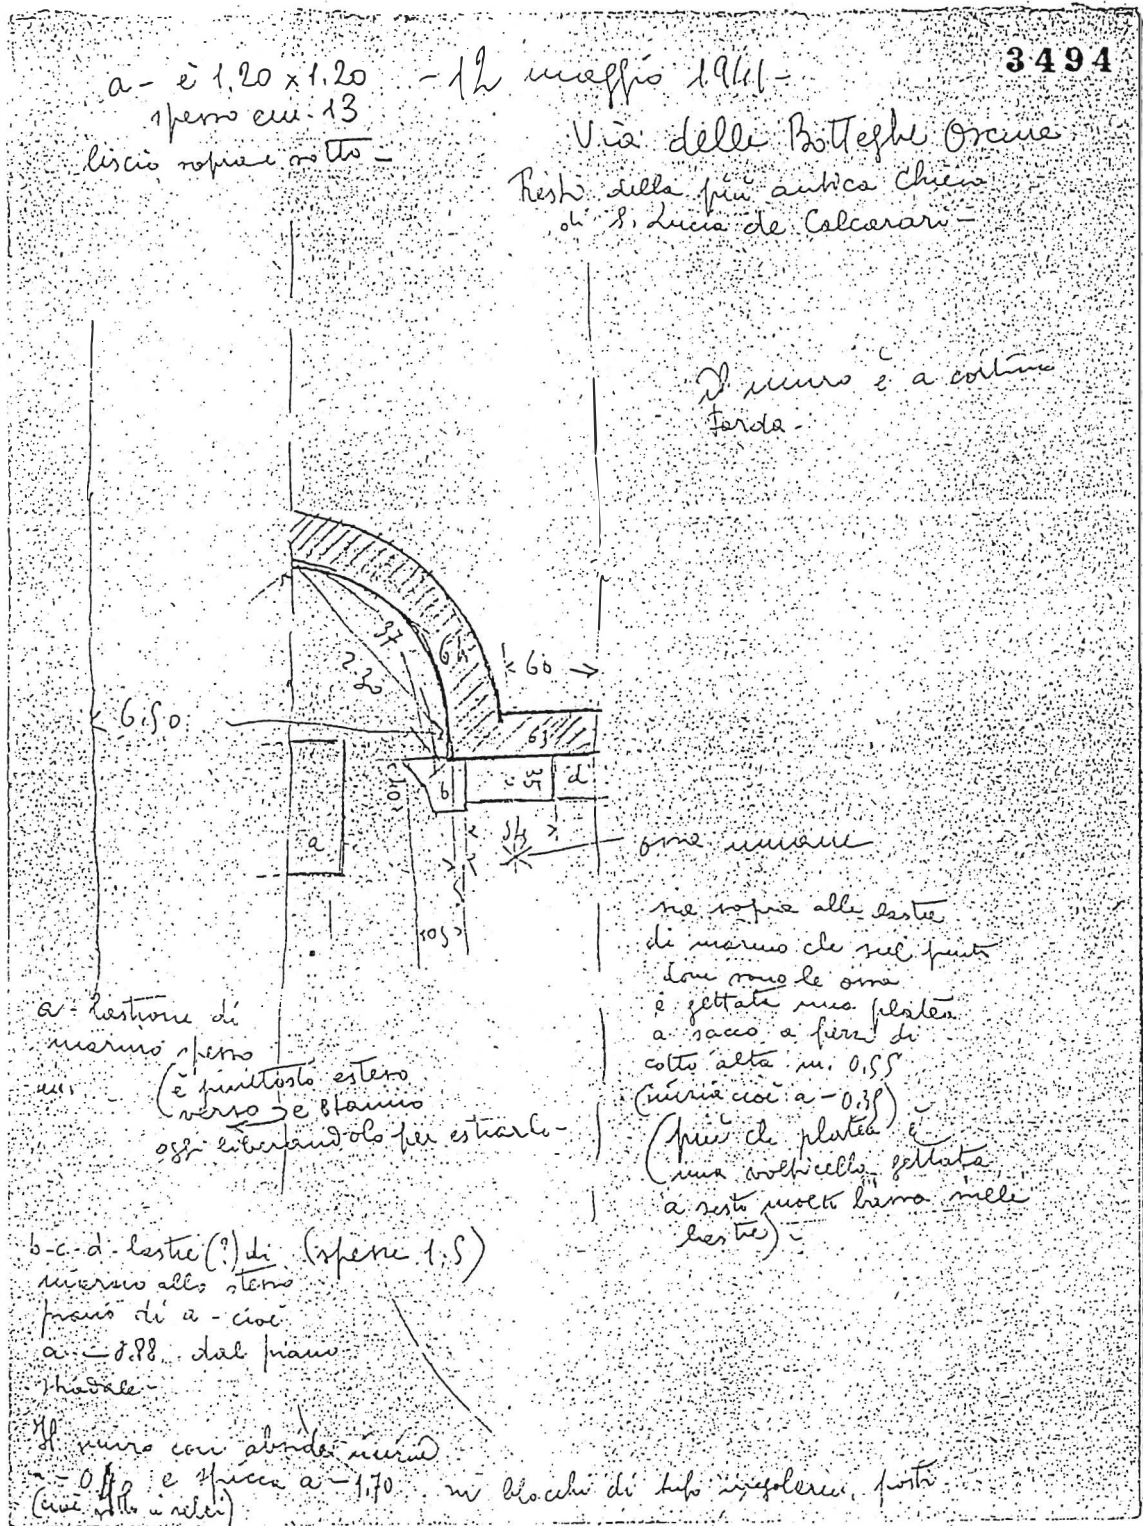 3494
a - è 1,20 x 1,20 - 12 maggio 1941 -
spesso cm. 13
liscio sopra e sotto -
Via delle Botteghe Oscure
Resti della più antica Chiesa
di S. Lucia de Calcarari -
Il muro è a cortina
tarda -
37
64
2.20
60
6,50
63
40
b
c
35
d
a
54
ossa umane
5
50
sia sopra alle lastre
di marmo che sul punto
dove sono le ossa
è gettata una platea
a sacco a pezzi di
cotto alta m. 0,55
(inizia cioè a - 0.35)
(più che platea è
una volticella gettata
a sesto molto basso sulle
lastre) -
a - lastrone di
marmo spesso
cm.
(è piuttosto esteso
verso
oggi liberandolo per estrarlo -
b-c-d - lastre (?) di (spesse 15)
marmo allo stesso
piano di a - cioè
a - 0.88 dal piano
stradale -
Il muro con abside inizia
a - 0,40 e spicca a - 1,70 in blocchi di tufo irregolari, posti
(cioè sotto i selci)